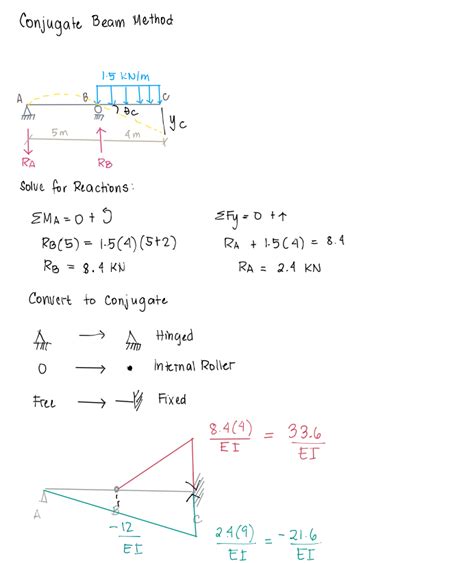 Conjugate Beam Method
1.5 KN/m
A B C
θc
yc
5m 4m
RA RB
Solve for Reactions:
ΣMA = 0 + ΣFy = 0 + ↑
RB(5) = 1.5(4)(5+2) RA + 1.5(4) = 8.4
RB = 8.4 KN RA = 2.4 KN
Convert to Conjugate
→ Hinged
O → • Internal Roller
Free → Fixed
8.4(4)/EI = 33.6/EI
A B C
-12/EI
2.4(9)/EI = -21.6/EI